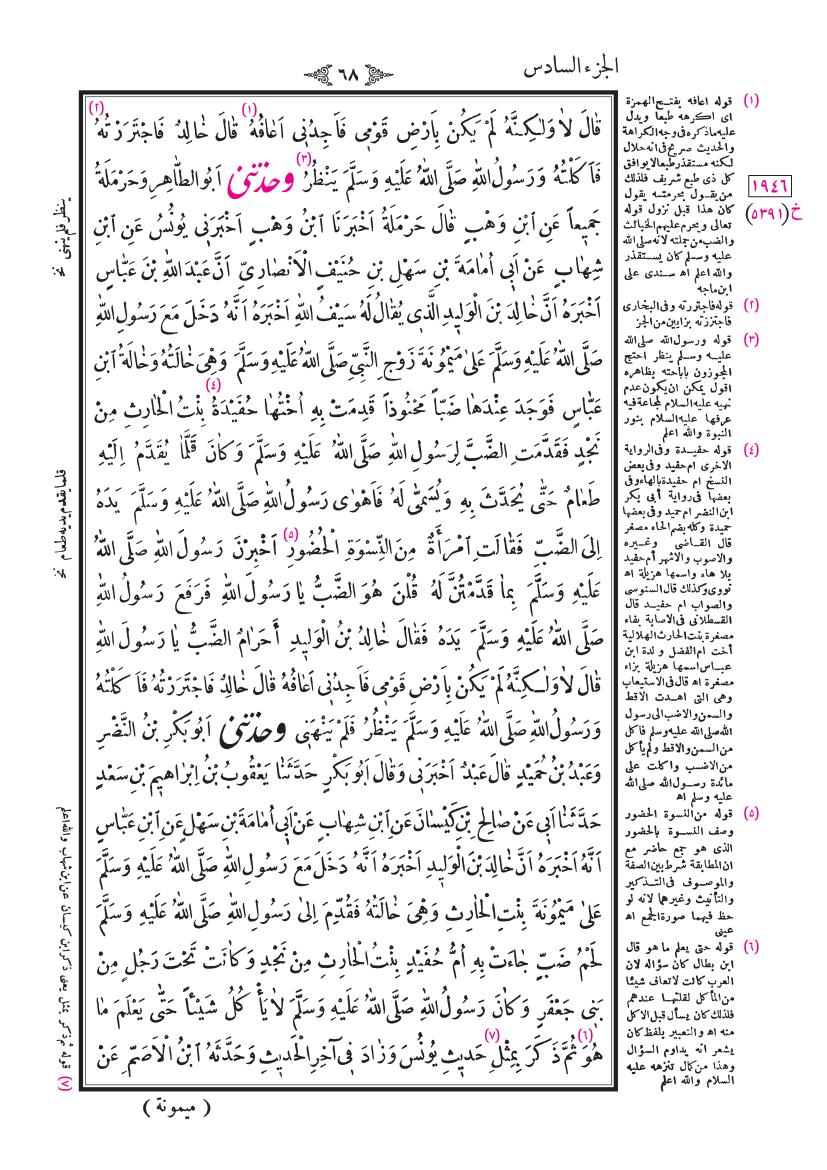 الجزء السادس
٦٨
قَالَ لَا وَلٰكِنَّهُ لَمْ يَكُنْ بِاَرْضِ قَوْمِى فَاَجِدُنِى اَعَافُهُ قَالَ خَالِدٌ فَاجْتَرَرْتُهُ
فَاَكَلْتُهُ وَرَسُولُ اللهِ صَلَّى اللهُ عَلَيْهِ وَسَلَّمَ يَنْظُرُ وحدثنى اَبُو الطَّاهِرِ وَحَرْمَلَةُ
جَمِيعاً عَنِ ابْنِ وَهْبٍ قَالَ حَرْمَلَةُ اَخْبَرَنَا ابْنُ وَهْبٍ اَخْبَرَنِى يُونُسُ عَنِ ابْنِ
شِهَابٍ عَنْ اَبِى اُمَامَةَ بْنِ سَهْلِ بْنِ حُنَيْفٍ الْاَنْصَارِىِّ اَنَّ عَبْدَ اللهِ بْنَ عَبَّاسٍ
اَخْبَرَهُ اَنَّ خَالِدَ بْنَ الْوَلِيدِ الَّذِى يُقَالُ لَهُ سَيْفُ اللهِ اَخْبَرَهُ اَنَّهُ دَخَلَ مَعَ رَسُولِ اللهِ
صَلَّى اللهُ عَلَيْهِ وَسَلَّمَ عَلىٰ مَيْمُونَةَ زَوْجِ النَّبِىِّ صَلَّى اللهُ عَلَيْهِ وَسَلَّمَ وَهِىَ خَالَتُهُ وَخَالَةُ ابْنِ
عَبَّاسٍ فَوَجَدَ عِنْدَهَا ضَبّاً مَحْنُوذاً قَدِمَتْ بِهِ اُخْتُهَا حُفَيْدَةُ بِنْتُ الْحَارِثِ مِنْ
نَجْدٍ فَقَدَّمَتِ الضَّبَّ لِرَسُولِ اللهِ صَلَّى اللهُ عَلَيْهِ وَسَلَّمَ وَكَانَ قَلَّمَا يُقَدَّمُ اِلَيْهِ
طَعَامٌ حَتّٰى يُحَدَّثَ بِهِ وَيُسَمّٰى لَهُ فَاَهْوٰى رَسُولُ اللهِ صَلَّى اللهُ عَلَيْهِ وَسَلَّمَ يَدَهُ
اِلَى الضَّبِّ فَقَالَتِ امْرَأَةٌ مِنَ النِّسْوَةِ الْحُضُورِ اَخْبِرْنَ رَسُولَ اللهِ صَلَّى اللهُ
عَلَيْهِ وَسَلَّمَ بِمَا قَدَّمْتُنَّ لَهُ قُلْنَ هُوَ الضَّبُّ يَا رَسُولَ اللهِ فَرَفَعَ رَسُولُ اللهِ
صَلَّى اللهُ عَلَيْهِ وَسَلَّمَ يَدَهُ فَقَالَ خَالِدُ بْنُ الْوَلِيدِ اَحَرَامٌ الضَّبُّ يَا رَسُولَ اللهِ
قَالَ لَا وَلٰكِنَّهُ لَمْ يَكُنْ بِاَرْضِ قَوْمِى فَاَجِدُنِى اَعَافُهُ قَالَ خَالِدٌ فَاجْتَرَرْتُهُ فَاَكَلْتُهُ
وَرَسُولُ اللهِ صَلَّى اللهُ عَلَيْهِ وَسَلَّمَ يَنْظُرُ فَلَمْ يَنْهَنِى وحدثنى اَبُو بَكْرِ بْنُ النَّضْرِ
وَعَبْدُ بْنُ حُمَيْدٍ قَالَ عَبْدٌ اَخْبَرَنِى وَقَالَ اَبُو بَكْرٍ حَدَّثَنَا يَعْقُوبُ بْنُ اِبْرَاهِيمَ بْنِ سَعْدٍ
حَدَّثَنَا اَبِى عَنْ صَالِحِ بْنِ كَيْسَانَ عَنِ ابْنِ شِهَابٍ عَنْ اَبِى اُمَامَةَ بْنِ سَهْلٍ عَنِ ابْنِ عَبَّاسٍ
اَنَّهُ اَخْبَرَهُ اَنَّ خَالِدَ بْنَ الْوَلِيدِ اَخْبَرَهُ اَنَّهُ دَخَلَ مَعَ رَسُولِ اللهِ صَلَّى اللهُ عَلَيْهِ وَسَلَّمَ
عَلىٰ مَيْمُونَةَ بِنْتِ الْحَارِثِ وَهِىَ خَالَتُهُ فَقُدِّمَ اِلىٰ رَسُولِ اللهِ صَلَّى اللهُ عَلَيْهِ وَسَلَّمَ
لَحْمُ ضَبٍّ جَاءَتْ بِهِ اُمُّ حُفَيْدٍ بِنْتُ الْحَارِثِ مِنْ نَجْدٍ وَكَانَتْ تَحْتَ رَجُلٍ مِنْ
بَنِى جَعْفَرٍ وَكَانَ رَسُولُ اللهِ صَلَّى اللهُ عَلَيْهِ وَسَلَّمَ لَا يَأْكُلُ شَيْئاً حَتّٰى يَعْلَمَ مَا
هُوَ ثُمَّ ذَكَرَ بِمِثْلِ حَدِيثِ يُونُسَ وَزَادَ فِى آخِرِ الْحَدِيثِ وَحَدَّثَهُ ابْنُ الْاَصَمِّ عَنْ
( ميمونة )
١٩٤٦
خ (٥٣٩١)
(١) قوله اعافه بفتح الهمزة
اى اكرهه طبعا ويدل
عليه ماذكره فى وجه الكراهة
والحديث صريح فى انه حلال
لكنه مستقذر طبعا لا يوافق
كل ذى طبع شريف فلذلك
من يقول بحرمته يقول
كان هذا قبل نزول قوله
تعالى ويحرم عليهم الخبائث
والضب من جملته لانه صلى الله
عليه وسلم كان يستقذر
والله اعلم اه سندى على
ابن ماجه
(٢) قوله فاجتررته وفى البخارى
فاجتززته بزايين من الجز
(٣) قوله ورسول الله صلى الله
عليه وسلم ينظر احتج
المجوزون باباحته بظاهره
اقول يمكن ان يكون عدم
نهيه عليه السلام لمجاعة فيه
عرفها عليه السلام بنور
النبوة والله اعلم
(٤) قوله حفيدة وفى الرواية
الاخرى ام حفيد وفى بعض
النسخ ام حفيدة بالهاء وفى
بعضها فى رواية ابى بكر
ابن النضر ام حميد وفى بعضها
حميدة وكله بضم الحاء مصغر
قال القاضى وغيره
والاصوب والاشهر أم حفيد
بلا هاء واسمها هزيلة اه
نووى وكذلك قال السنوسى
والصواب ام حفيد قال
القسطلانى فى الاصابة بفاء
مصغرة بنت الحارث الهلالية
أخت ام الفضل والدة ابن
عباس اسمها هزيلة بزاء
مصغرة اه قال فى الاستيعاب
وهى التى اهدت الاقط
والسمن والاضب الى رسول
الله صلى الله عليه وسلم فاكل
من السمن والاقط ولم يأكل
من الاضب واكلت على
مائدة رسول الله صلى الله
عليه وسلم اه
(٥) قوله من النسوة الحضور
وصف النسوة بالحضور
الذى هو جمع حاضر مع
ان المطابقة شرط بين الصفة
والموصوف فى التذكير
والتأنيث وغيرهما لانه لو
حظ فيهما صورة الجمع اه
عينى
(٦) قوله حتى يعلم ما هو قال
ابن بطال كان سؤاله لان
العرب كانت لا تعاف شيئا
من المأكل لقلتها عندهم
فلذلك كان يسأل قبل الاكل
منه اه والتعبير بلفظ كان
يشعر انه يداوم السؤال
وهذا من كمال تنزهه عليه
السلام والله اعلم
ينظر فلم ينهنى نخ
قلما يقدم يديه طعام نخ
(٧) قوله ثم ذكر بمثل يعنى ذكر ابن كيسان عن ابن شهاب والله اعلم